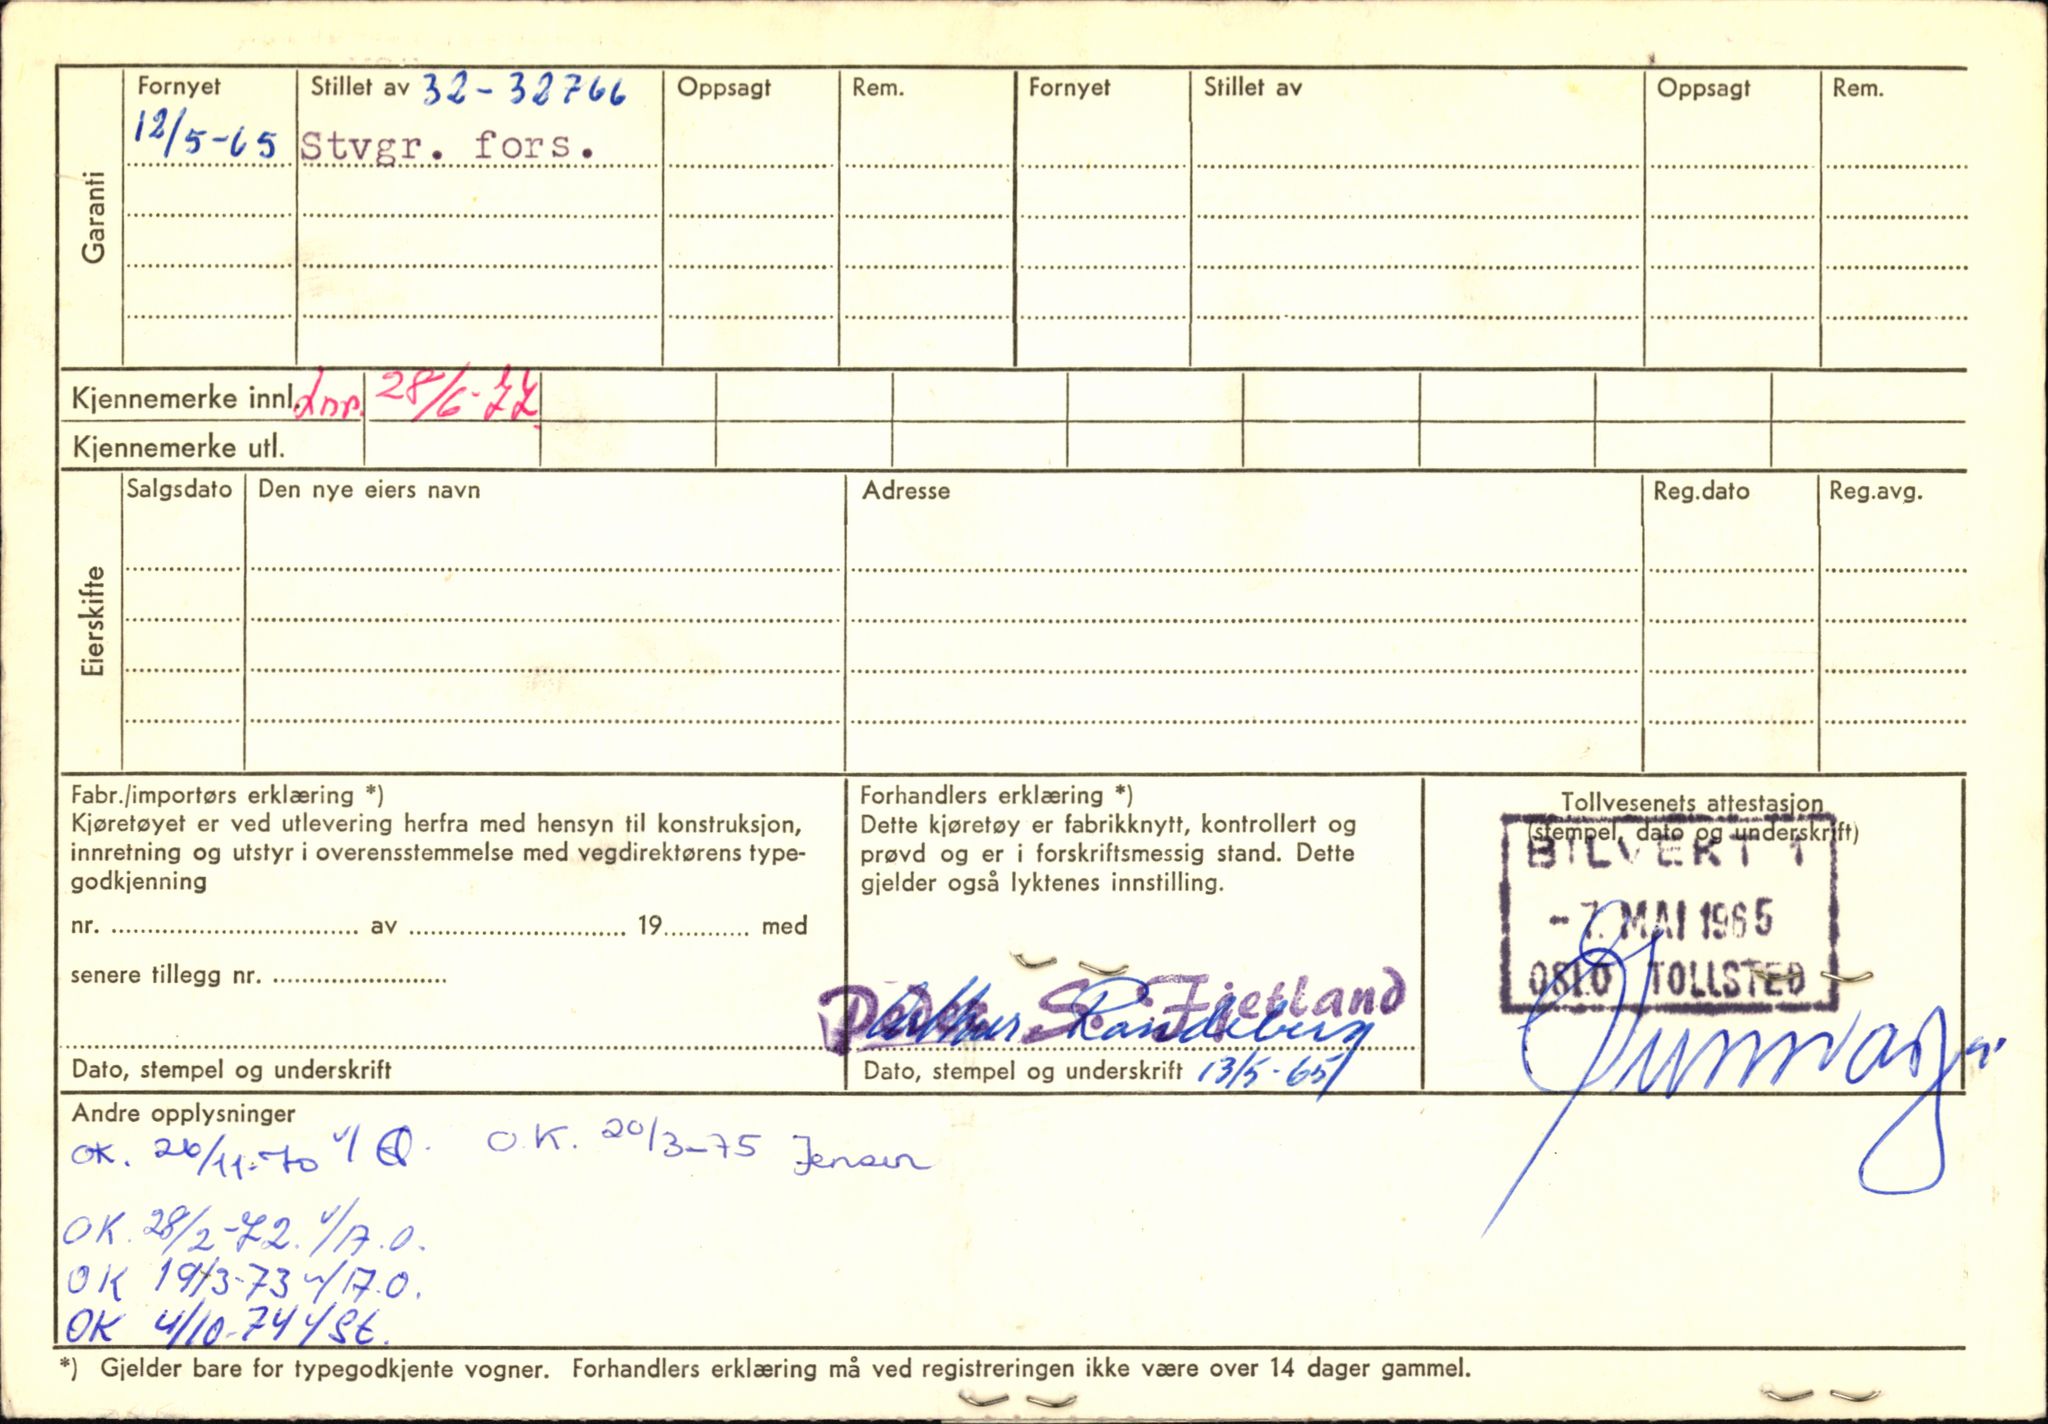 Fornyet Stillet av 32-32766 Oppsagt Rem. Fornyet Stillet av Oppsagt Rem.
12/5-65 Stvgr. fors.
Garanti
Kjennemerke innl. 28/6-77
Kjennemerke utl.
Salgsdato Den nye eiers navn Adresse Reg.dato Reg.avg.
Eierskifte
Fabr./importørs erklæring *)
Kjøretøyet er ved utlevering herfra med hensyn til konstruksjon,
innretning og utstyr i overensstemmelse med vegdirektørens type-
godkjenning
nr. av 19 med
senere tillegg nr.
Dato, stempel og underskrift
Forhandlers erklæring *)
Dette kjøretøy er fabrikknytt, kontrollert og
prøvd og er i forskriftsmessig stand. Dette
gjelder også lyktenes innstilling.
Peder S. Fjetland
Randeberg
Dato, stempel og underskrift 13/5-65
Tollvesenets attestasjon
(stempel, dato og underskrift)
BILVERT 1
-7. MAI 1965
OSLO TOLLSTED
Andre opplysninger
OK. 26/11-70 O.K. 20/3-75 Jensen
OK. 28/2-72. v/A.O.
OK 19/3-73 v/A.O.
OK 4/10-74 v/St.
*) Gjelder bare for typegodkjente vogner. Forhandlers erklæring må ved registreringen ikke være over 14 dager gammel.